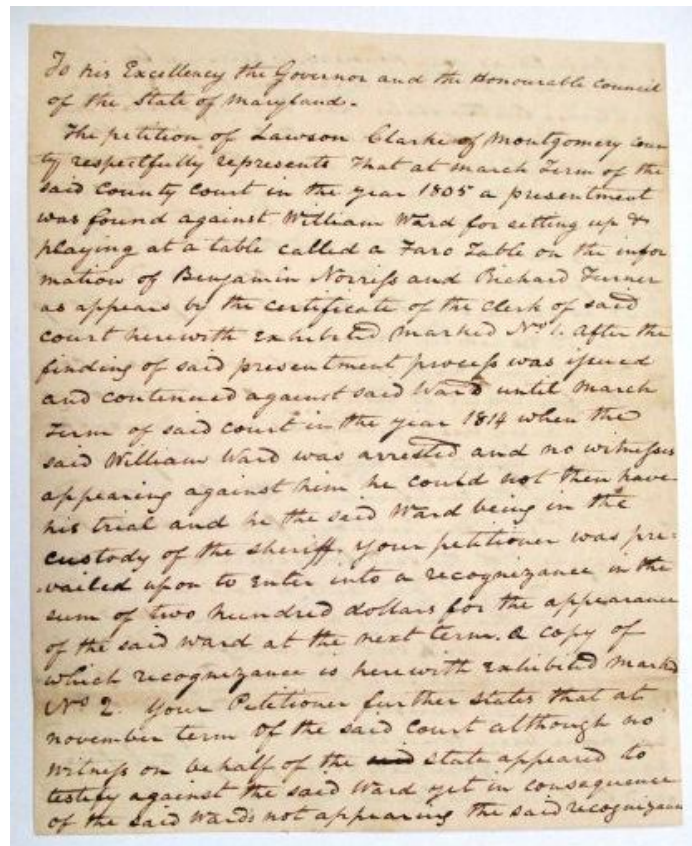 To his Excellency the Governor and the Honourable Council
of the State of Maryland.
The petition of Lawson Clarke of Montgomery coun
ty respectfully represents That at march Term of the
said County Court in the year 1805 a presentment
was found against William Ward for setting up &
playing at a table called a Faro Table on the infor
mation of Benjamin Norriss and Richard Turner
as appears by the certificate of the clerk of said
court herewith exhibited marked No 1. After the
finding of said presentment process was issued
and continued against said Ward until March
Term of said court in the year 1814 when the
said William Ward was arrested and no witnesses
appearing against him he could not then have
his trial and he the said Ward being in the
custody of the sheriff. your petitioner was pre-
vailed upon to enter into a recognizance in the
sum of two hundred dollars for the appearance
of the said ward at the next term. a copy of
which recognizance is herewith exhibited marked
No 2. Your Petitioner further states that at
november term of the said Court although no
witness on behalf of the state appeared to
testify against the said Ward yet in consequence
of the said Wards not appearing the said recognizance